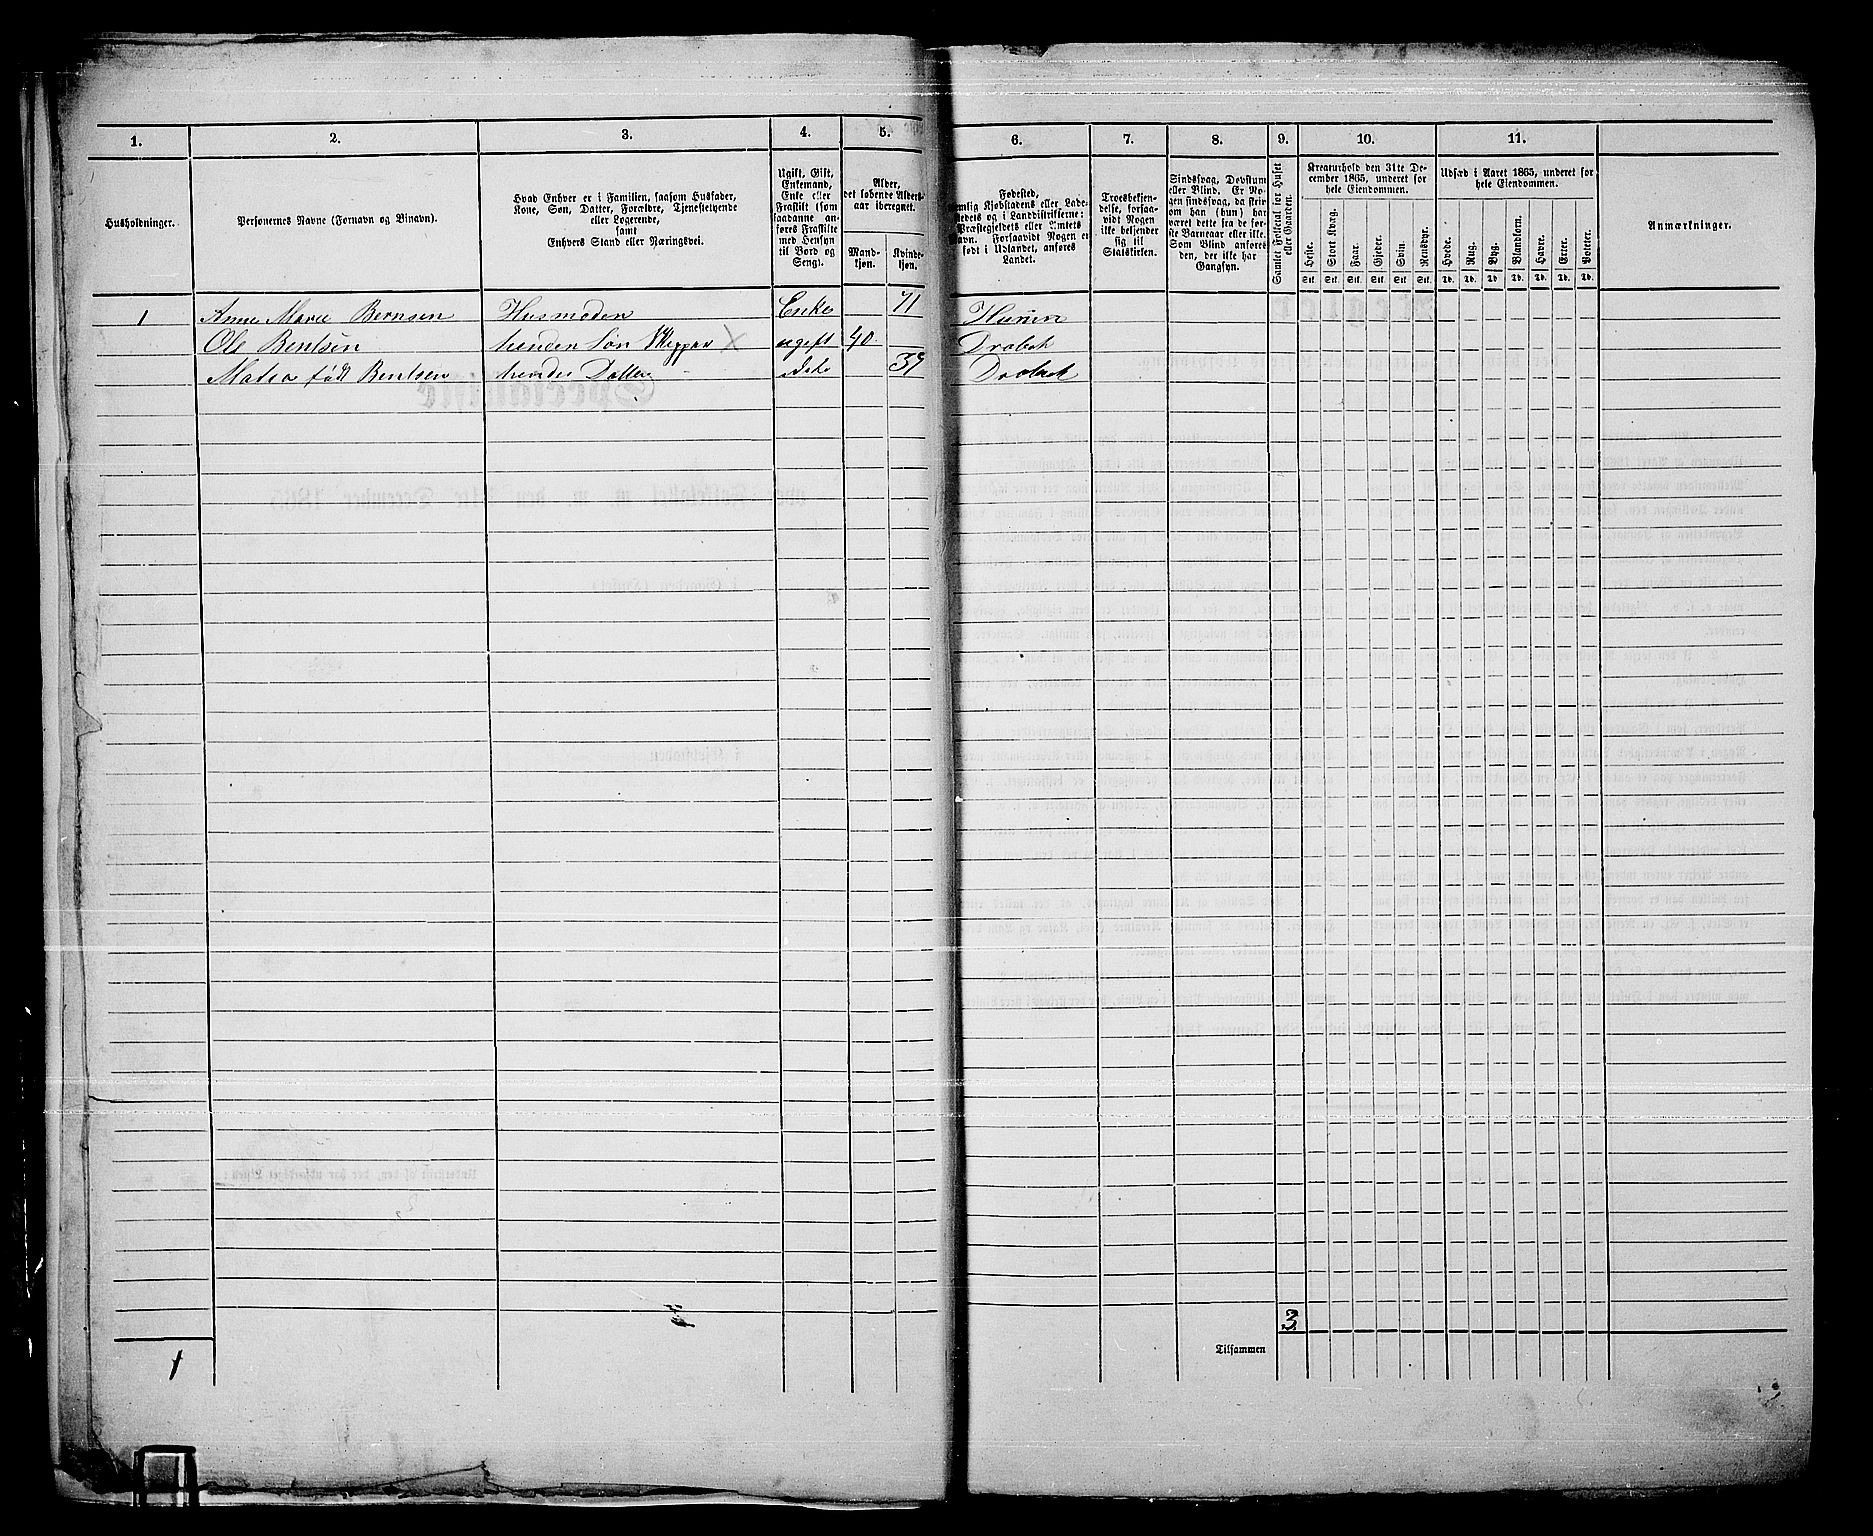 1. 2. 3. 4. 5. 6. 7. 8. 9. 10. 11.
Husholdninger.
Personernes Navne (Fornavn og Binavn).
Hvad Enhver er i Familien, saasom Husfader,
Kone, Søn, Datter, Forældre, Tjenestetyende
eller Logerende,
samt
Enhvers Stand eller Næringsvei.
Ugift, Gift,
Enkemand,
Enke eller
Fraskilt (som
saadanne an-
føres Fraskilte
med Hensyn
til Bord og
Seng).
Alder,
det løbende Alders-
aar iberegnet.
Mand-
kjøn.
Kvinde-
kjøn.
Fødested,
nemlig Kjøbstadens eller Lade-
stedets og i Landdistrikterne:
Præstegjeldets eller Amtets
Navn. Forsaavidt Nogen er
født i Udlandet, anføres
Landet.
Troesbekjen-
delse, forsaa-
vidt Nogen
ikke bekjender
sig til
Statskirken.
Sindssvag, Døvstum
eller Blind. Er No-
gen sindssvag, da skriv
om han (hun) har
været dette fra de før-
ste Barneaar eller ikke.
Som Blind anføres
den, der ikke har
Gangsyn.
Samlet Folketal for Huset
eller Gaarden.
Kreaturhold den 31te De-
cember 1865, underet for
hele Eiendommen.
Heste. Stort Kvæg. Faar. Gjeder. Svin. Rensdyr.
Stk. Stk. Stk. Stk. Stk. Stk.
Udsæd i Aaret 1865, underet for
hele Eiendommen.
Hvede. Rug. Byg. Blandkorn. Havre. Erter. Poteter.
Td. Td. Td. Td. Td. Td. Td.
Anmærkninger.
1 Anne Marie Bernsen Husmoden Enke 71 Hurum
Ole Bentsen hendes Søn Skipper ugift 40 Drøbak
Matea født Bentsen hendes Datter 39 Drøbak
3
Tilsammen
1